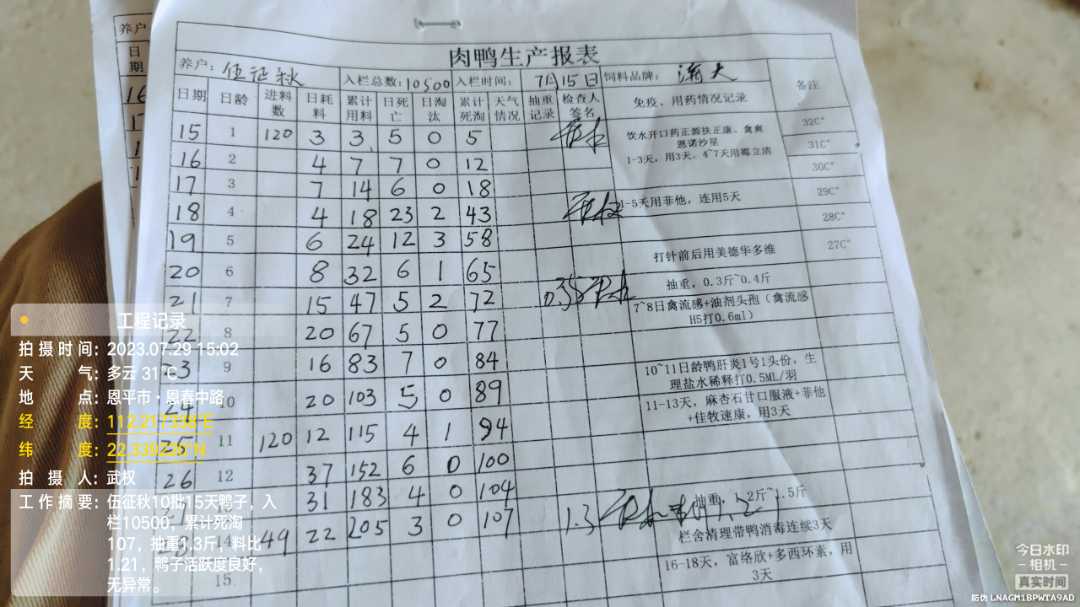 养户
日期
16
肉鸭生产报表
养户: 伍征秋 入栏总数: 10500 入栏时间: 7月15日 饲料品牌: 海大
日期 日龄 进料数 日耗料 累计用料 日死亡 日淘汰 累计死淘 天气情况 抽重记录 检查人签名 免疫、用药情况记录 备注
15 1 120 3 3 5 0 5 饮水开口药正源扶正康、禽爽恩诺沙星 32C°
1-3天，用3天、4~7天用霉立清 31C°
16 2 4 7 7 0 12 30C°
17 3 7 14 6 0 18 1-5天用菲他，连用5天 29C°
18 4 4 18 23 2 43 28C°
19 5 6 24 12 3 58 打针前后用美德华多维 27C°
20 6 8 32 6 1 65 抽重，0.3斤~0.4斤
21 7 15 47 5 2 72 0.35 7~8日禽流感+油剂头孢（禽流感H5打0.6ml）
22 8 20 67 5 0 77
23 9 16 83 7 0 84 10~11日龄鸭肝炎1号1头份，生理盐水稀释打0.5ML/羽
24 10 20 103 5 0 89 11-13天，麻杏石甘口服液+菲他+佳牧速康，用3天
25 11 120 12 115 4 1 94
26 12 37 152 6 0 100
31 183 4 0 104 抽重，1.2斤~1.5斤
14 49 22 205 3 0 107 1.3 栏舍清理带鸭消毒连续3天
15 16-18天，富络欣+多西环素，用3天
工程记录
拍摄时间: 2023.07.29 15:02
天气: 多云 31℃
地点: 恩平市·恩春中路
经度: 112.217338°E
纬度: 22.339226°N
拍摄人: 武权
工作摘要: 伍征秋10批15天鸭子，入
栏10500，累计死淘
107，抽重1.3斤，料比
1.21，鸭子活跃度良好，
无异常。
今日水印
-相机-
真实时间
防伪 LNAGM1BPWTA9AD